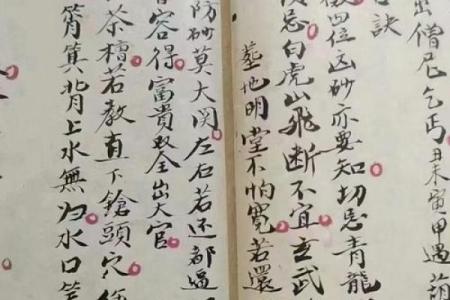 出僧尼乞丐丑未寅甲遇葫
訣
徵四位凶砂亦要知切忌青龍
忌白虎山飛断不宜玄武
墓地明堂不怕寬若還
防砂莫大関左右若还都過
容得富貴双全出大官
茶檀若教直下鎗頭穴
筲箕背上水無归水口